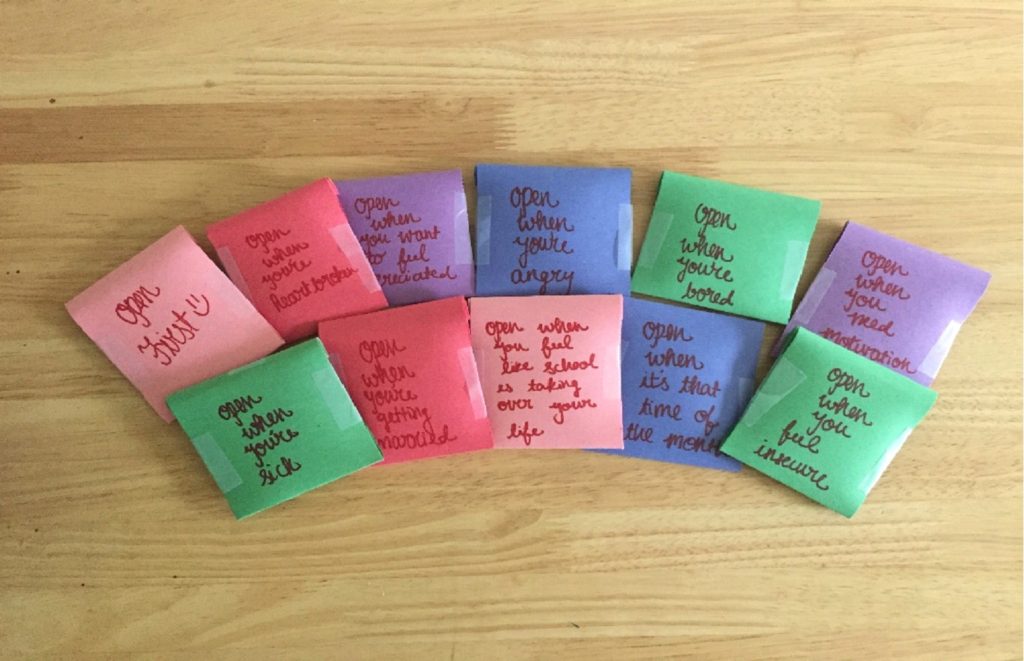 open
first
open
when
you're
heartbroken
open
when
you want
to feel
reciated
open
when
you're
angry
open
when
you're
bored
open
when
you
need
motivation
open
when
you're
sick
open
when
you're
getting
married
open when
you feel
like school
is taking
over your
life
open
when
it's that
time of
the month
open
when
you
feel
insecure